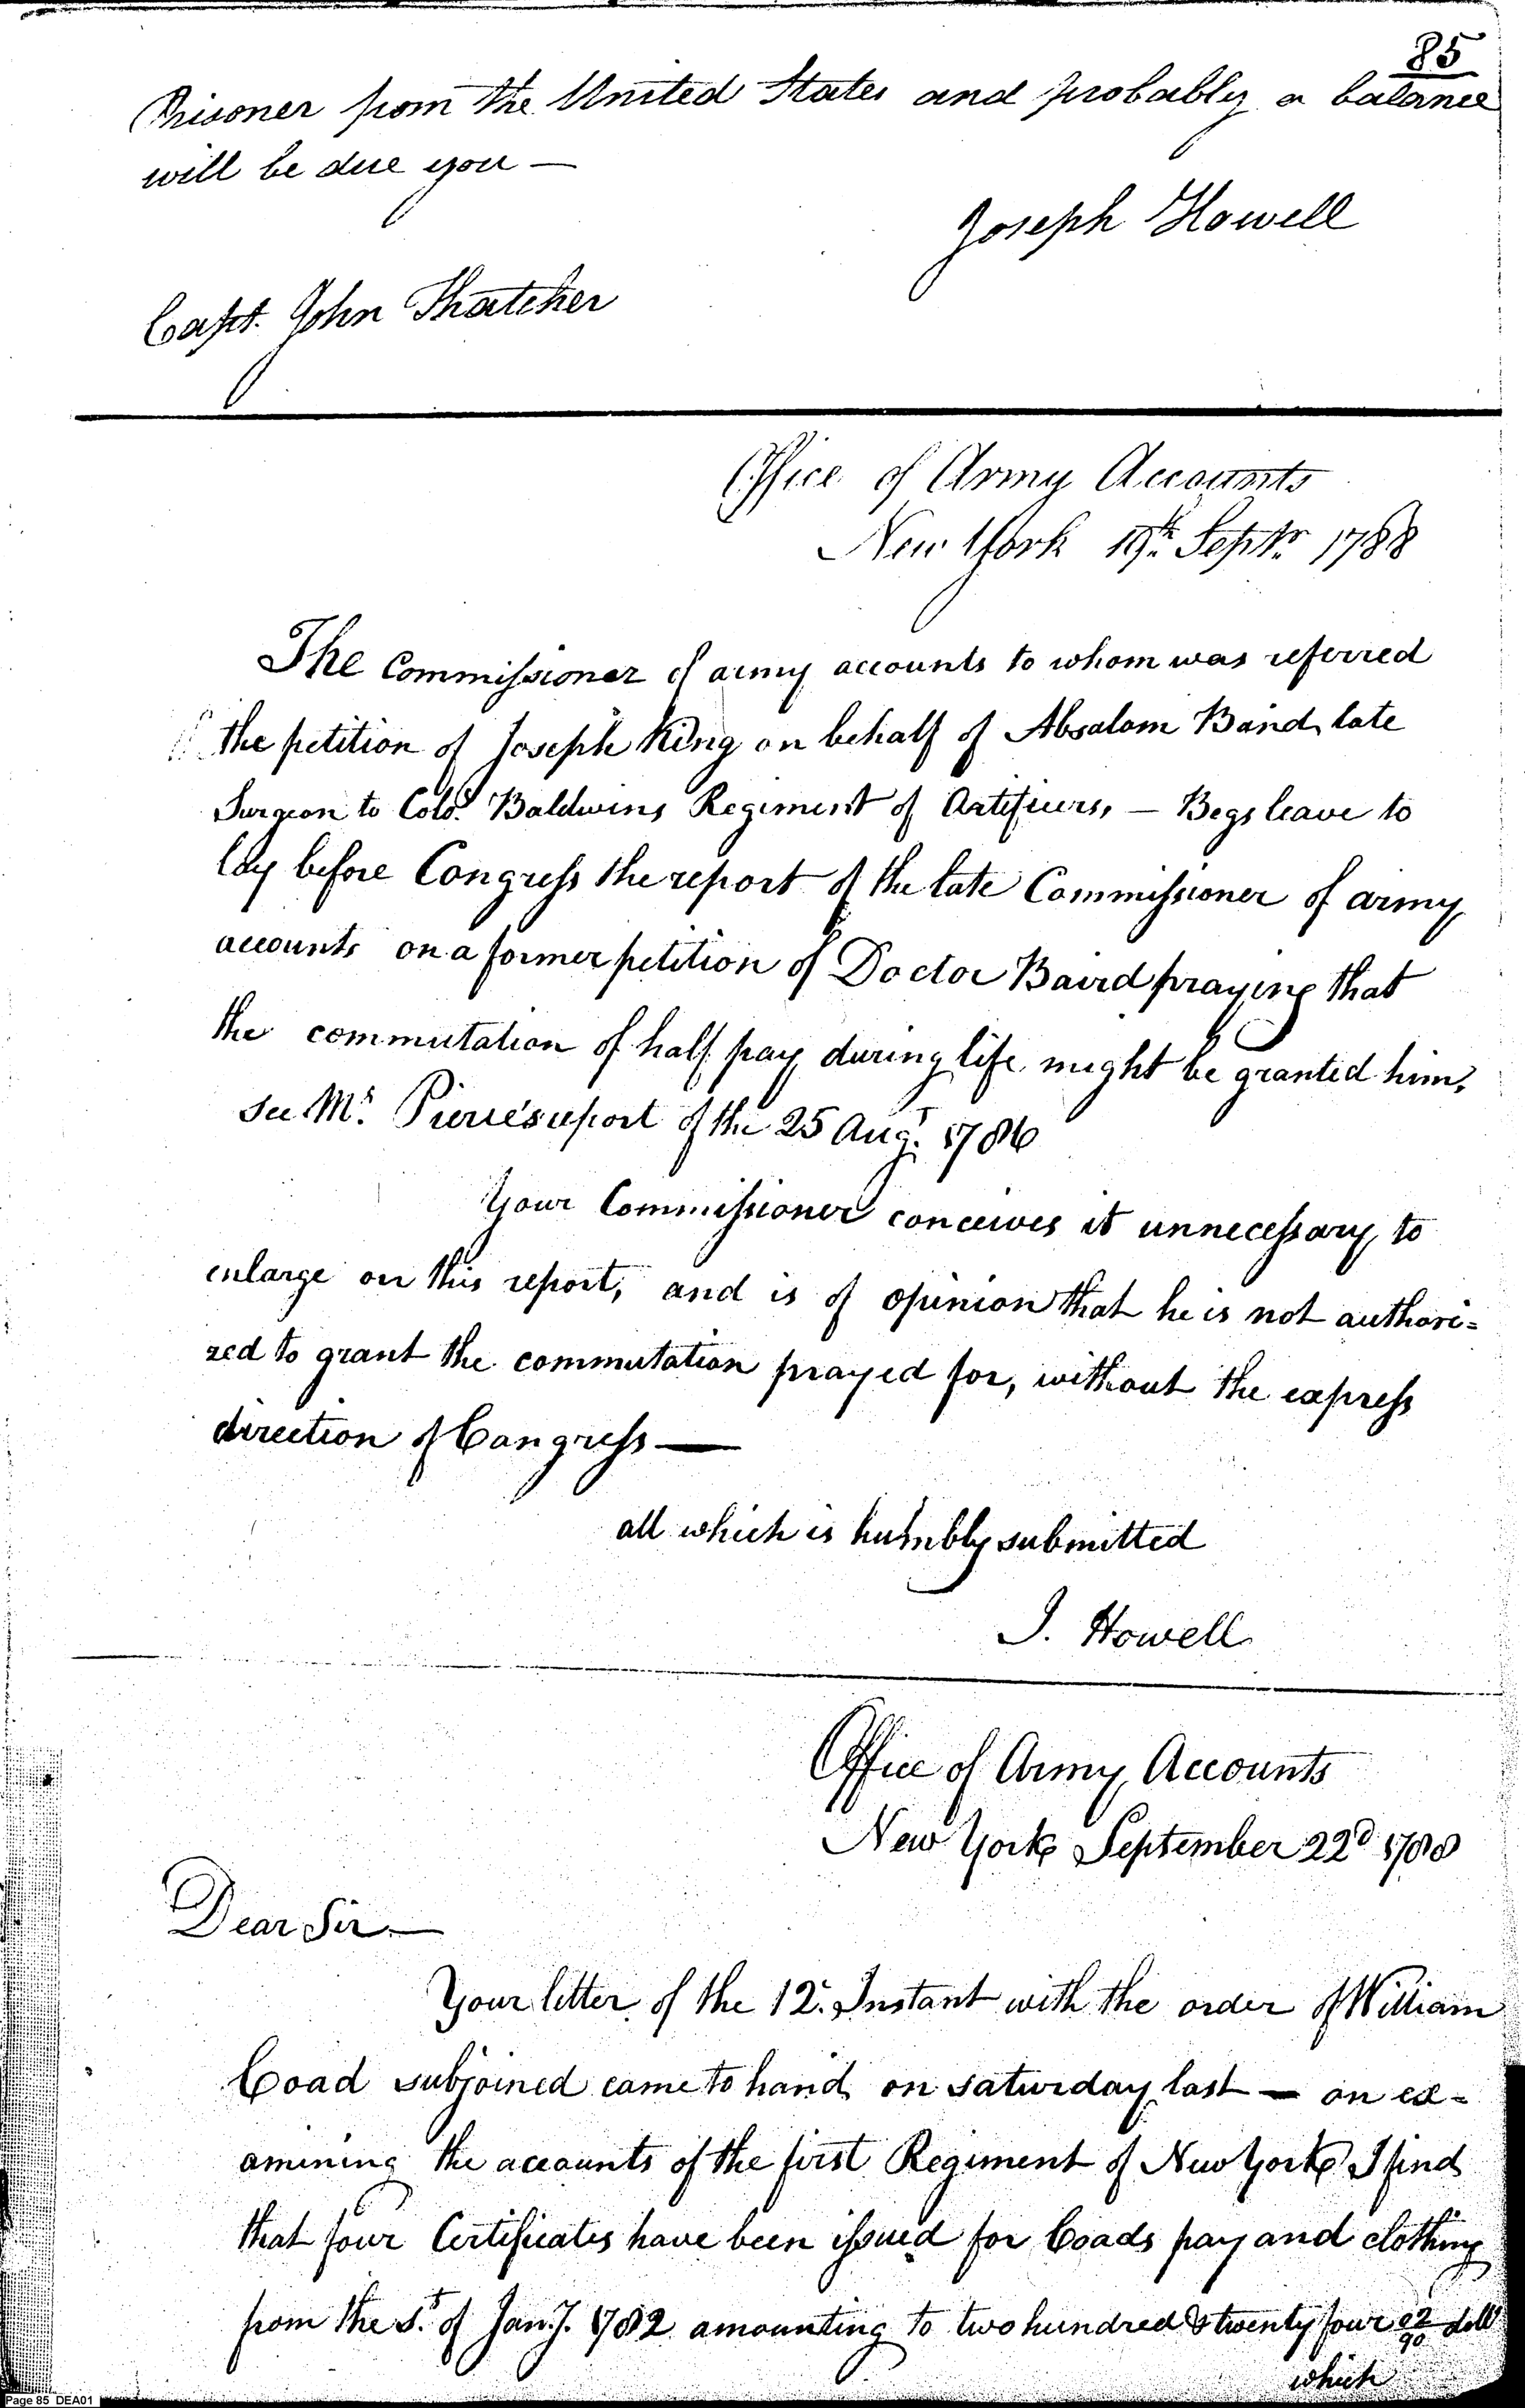 85
Prisoner from the United States and probably a balance
will be due you —
Joseph Howell
Capt. John Thatcher
Office of Army Accounts
New York 19th Septr 1788
The Commissioner of army accounts to whom was referred
the petition of Joseph King on behalf of Absalom Baird late
Surgeon to Colo. Baldwins Regiment of Artificers, — Begs leave to
lay before Congress the report of the late Commissioner of army
accounts on a former petition of Doctor Baird praying that
the commutation of half pay during life might be granted him,
see Mr. Pierce's report of the 25 Augt. 1786
Your Commissioner conceives it unnecessary to
enlarge on this report, and is of opinion that he is not authori=
zed to grant the commutation prayed for, without the express
direction of Congress —
all which is humbly submitted
J. Howell
Office of Army Accounts
New York September 22d 1788
Dear Sir —
Your letter of the 12. Instant with the order of William
Coad subjoined came to hand on saturday last — on ex=
amining the accounts of the first Regiment of New York I find
that four Certificates have been issued for Coads pay and clothing
from the 1st. of Jany. 1782 amounting to two hundred & twenty four 22/90 dolls
which
Page 85 DEA01